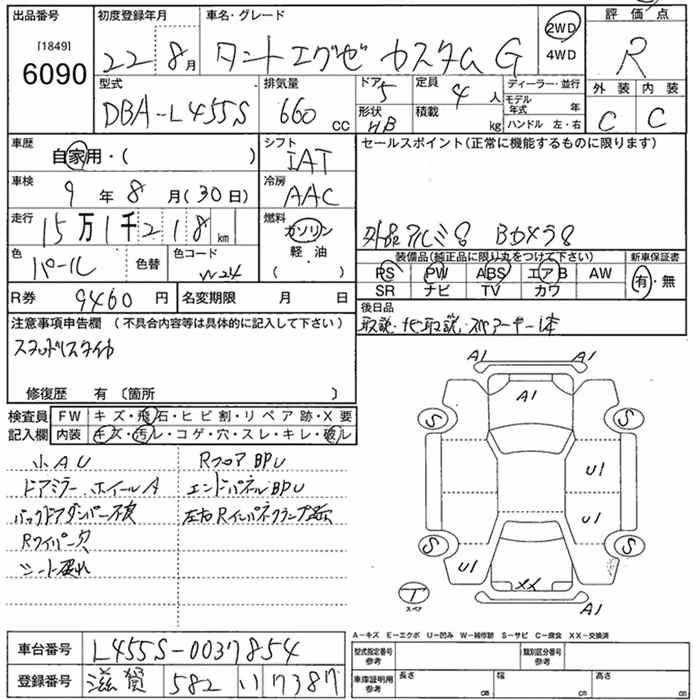 出品番号 初度登録年月 車名・グレード 評価点
[1849]
6090
22 8月 タントエグゼ カスタム G 2WD R
4WD
型式 排気量 ドア 定員 ディーラー・並行 外装 内装
DBA-L455S 660 CC 5 4人 モデル年式 年 C C
形状 HB 積載 kg ハンドル 左・右
車歴 自家用・( ) シフト IAT セールスポイント(正常に機能するものに限ります)
車検 9年8月(30日) 冷房 AAC
走行 15万1千218km 燃料 ガソリン 社外品アルミ Bカメラ
軽油
( )
色 パール 色替 色コード W24 装備品(純正品に限り丸をつけて下さい) 新車保証書
PS PW ABS エアB AW 有・無
SR ナビ TV カワ
R券 9460円 名変期限 月 日 後日品
取説・ナビ取説・スペアキー1本
注意事項申告欄 (不具合内容等は具体的に記入して下さい)
スタッドレスタイヤ
修復歴 有 〔箇所 〕
検査員 FW キズ・飛石・ヒビ割・リペア跡・X要
記入欄 内装 キズ・汚レ・コゲ・穴・スレ・キレ・破レ
小AU RフロアBPU
ドアミラー、ホイールA エンドパネルBPU
バックドアダンパー不良 左右Rインパネクランプ
Rワイパー欠
シート破れ
A1 A1
A1
S S
U1
U1
S S
U1
XX
A1
T
スペア
A-キズ E-エクボ U-凹み W-補修跡 S-サビ C-腐食 XX-交換済
車台番号 L455S-0037854 型式指定番号 参考 類別区分番号 参考
登録番号 滋賀 582 い 7387 車庫証明用 参考 長さ cm 幅 cm 高さ cm